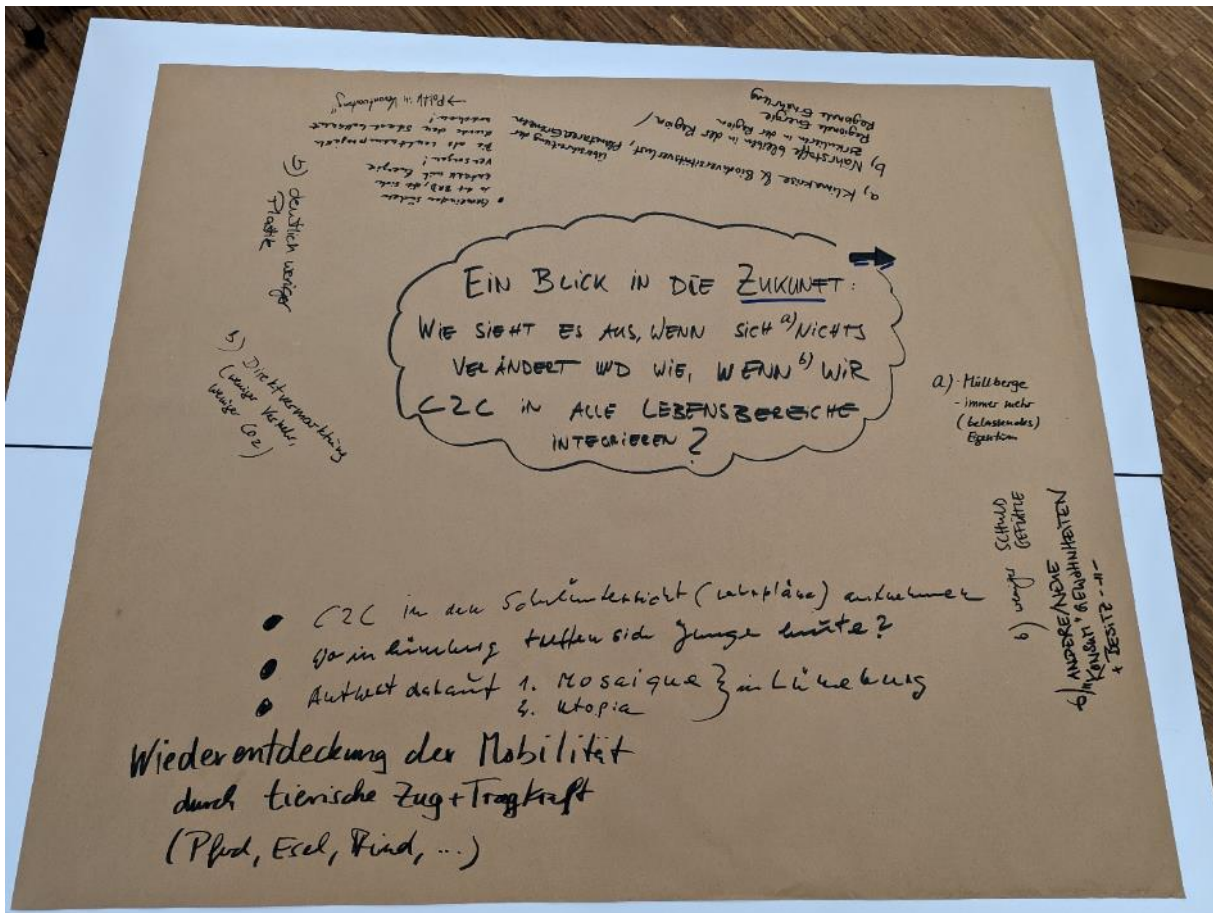 EIN BLICK IN DIE ZUKUNFT:
WIE SIEHT ES AUS, WENN SICH a) NICHTS
VERÄNDERT UND WIE, WENN b) WIR
C2C IN ALLE LEBENSBEREICHE
INTEGRIEREN?
a) Klimakrise & Biodiversitätsverlust, Überschreitung der
Planetaren Grenzen
b) Nährstoffe bleiben in der Region /
zirkulieren in der Region
Regionale Energie
Regionale Ernährung
• Gemeinden südlich
in der BRD, die sich
mit Energie
versorgen!
Die als
durch den Staat
→ Politik in Verantwortung"
b) deutlich weniger
Plastik
b) Direktvermarktung
(weniger Verkehr,
weniger CO2)
a) - Müllberge
- immer mehr
(belastendes)
Eigentum
b) weniger SCHULD
GEFÜHLE
b) ANDERE/NEUE
"KONSUM" GEWOHNHEITEN
+ BESITZ -"-
• C2C in den Schulunterricht (Lehrpläne) aufnehmen
• Wo in Lüneburg treffen sich Junge heute?
• Antwort darauf 1. Mosaique } in Lüneburg
2. Utopia
Wiederentdeckung der Mobilität
durch tierische Zug+Tragkraft
(Pferd, Esel, Rind, ...)